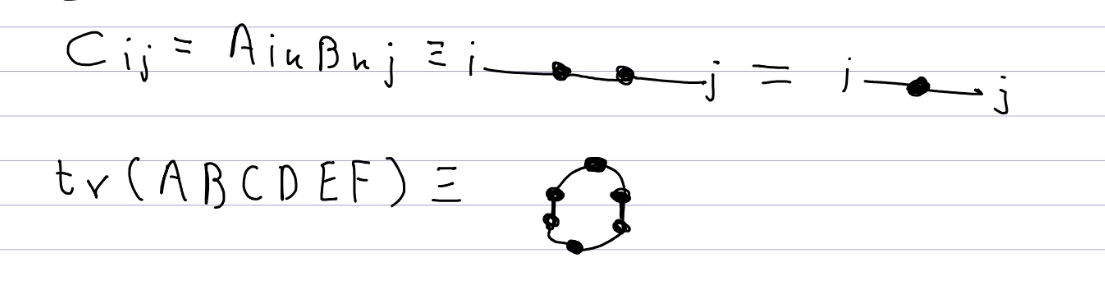 Cij = AikBkj ≡ i j = i j
tr(ABCDEF) ≡